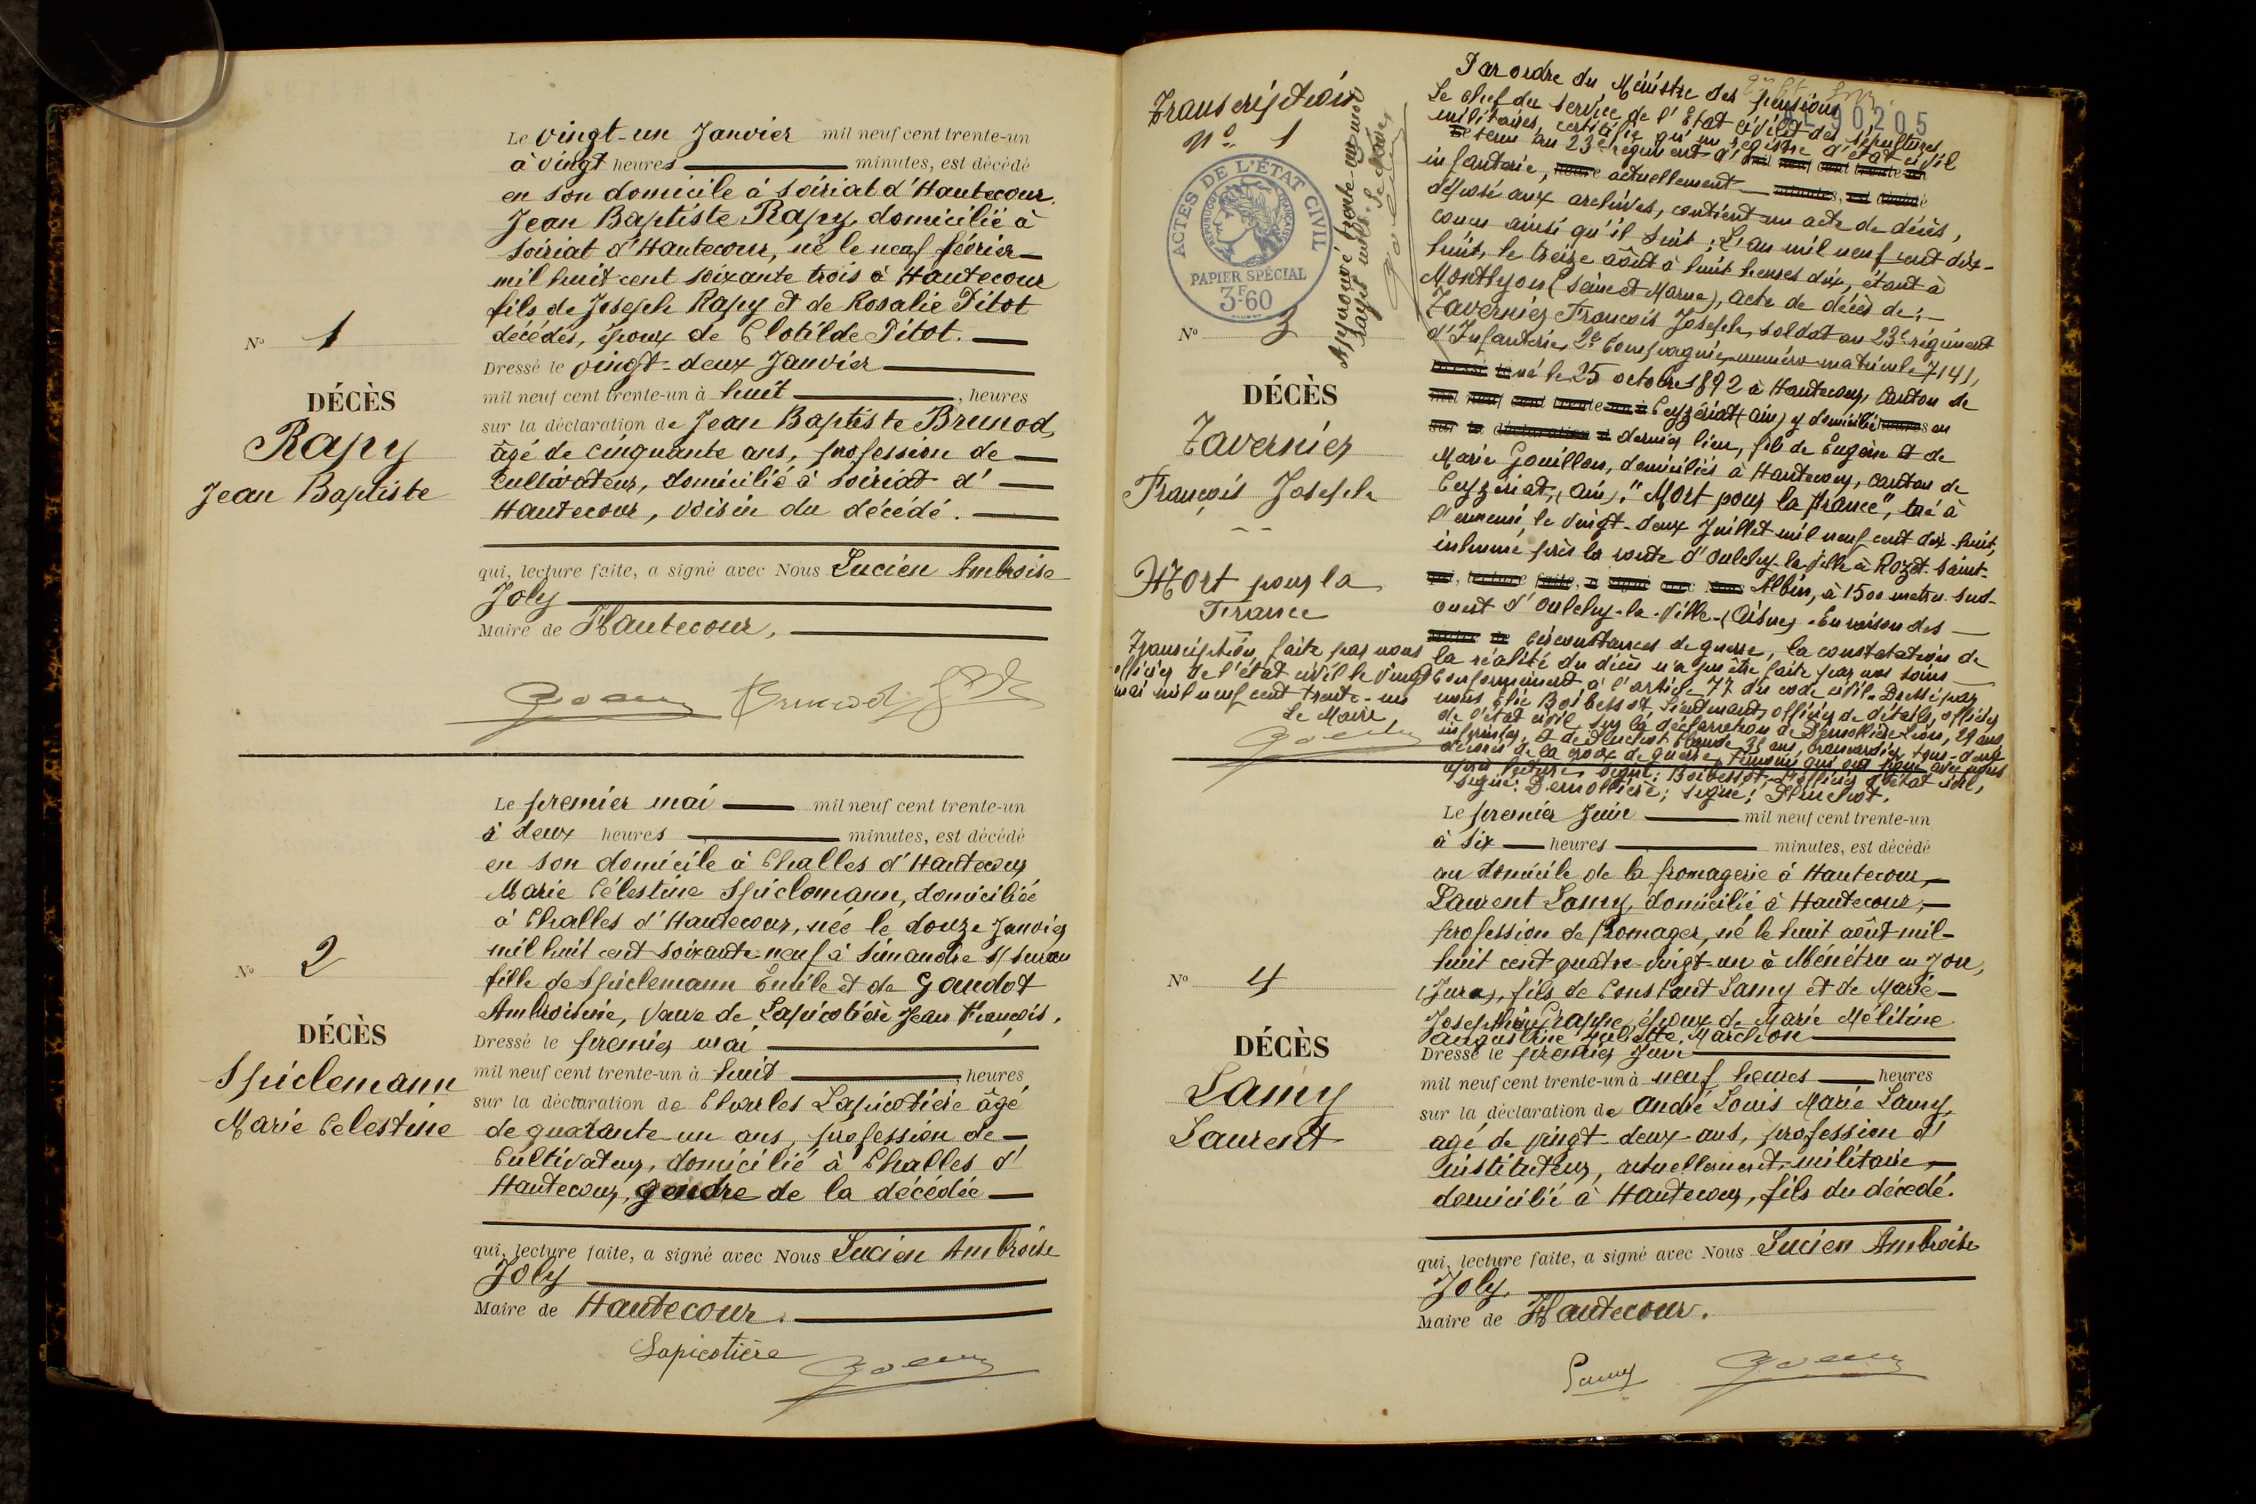 Le vingt-un Janvier mil neuf cent trente-un
à vingt heures minutes, est décédé
en son domicile à Soiriat d'Hautecour.
Jean Baptiste Rapy, domicilié à
Soiriat d'Hautecour, né le neuf février
mil huit cent soixante trois à Hautecour
fils de Joseph Rapy et de Rosalie Pitot
décédés, époux de Clotilde Pitot.
Dressé le vingt-deux Janvier
mil neuf cent trente-un à huit, heures
sur la déclaration de Jean Baptiste Brunod,
âgé de cinquante ans, profession de
cultivateur, domicilié à Soiriat d'
Hautecour, voisin du décédé.
qui, lecture faite, a signé avec Nous Lucien Ambroise
Joly
Maire de Hautecour.
Nº 1
DÉCÈS
Rapy
Jean Baptiste
Brunod
Le premier mai mil neuf cent trente-un
à deux heures minutes, est décédé
en son domicile à Challes d'Hautecour
Marie Célestine Spiclemann, domiciliée
à Challes d'Hautecour, née le douze Janvier
mil huit cent soixante-neuf à Simandre s/ Suran
fille de Spiclemann Emile et de Gaudot
Ambroisine, veuve de Lapicotière Jean François.
Dressé le premier mai
mil neuf cent trente-un à huit, heures
sur la déclaration de Charles Lapicotière âgé
de quarante un ans, profession de
cultivateur, domicilié à Challes d'
Hautecour, gendre de la décédée
qui, lecture faite, a signé avec Nous Lucien Ambroise
Joly
Maire de Hautecour.
Nº 2
DÉCÈS
Spiclemann
Marie Celestine
Lapicotière
Transcription
Nº 1
ACTES DE L'ÉTAT CIVIL
RÉPUBLIQUE FRANÇAISE
PAPIER SPÉCIAL
3F60
Approuvé trente-un mots
rayés nuls. Le Maire,
Nº 3
DÉCÈS
Tavernier
François Joseph
Mort pour la
France
Transcription faite par nous
officier de l'état civil le vingt
mai mil neuf cent trente-un
Le Maire,
90205
Par ordre du Ministre des pensions
Le chef du service de l'Etat civil et des sépultures
militaires, certifie qu'un registre d'état civil
tenu au 23e régiment d'
infanterie, actuellement
déposé aux archives, contient un acte de décès,
conçu ainsi qu'il suit: L'an mil neuf cent dix-
huit, le treize août à huit heures dix, étant à
Monthyon (Seine et Marne), acte de décès de:
Tavernier François Joseph, soldat au 23e régiment
d'Infanterie, 2e Compagnie, numéro matricule 7141,
né le 25 octobre 1892 à Hautecour, canton de
Ceyzériat (Ain) y domicilié en
dernier lieu, fils de Eugène et de
Marie Gouillon, domiciliés à Hautecour, canton de
Ceyzériat, (Ain), "Mort pour la France", tué à
l'ennemi, le vingt-deux Juillet mil neuf cent dix-huit,
inhumé près la route d'Oulchy-la-Ville à Rozet-Saint-
Albin, à 1500 mètres sud-
ouest d'Oulchy-la-Ville (Aisne). En raison des
circonstances de guerre, la constatation de
la réalité du décès n'a pu être faite par nos soins
conformément à l'article 77 du code civil. Dressé par
nous Elie Boibessot Lieutenant, officier de détails, officier
de l'état civil, sur la déclaration de Demollière Léon, 29 ans
infirmier, et de Pluchot Claude 35 ans, brancardier, tous-deux
décorés de la croix de guerre, témoins qui ont signé avec nous
après lecture. Signé: Boibessot, l'officier d'état civil,
signé: Demollière; signé: Pluchot.
Le premier Juin mil neuf cent trente-un
à six heures minutes, est décédé
au domicile de la fromagerie à Hautecour,
Laurent Lamy, domicilié à Hautecour,
profession de fromager, né le huit août mil-
huit cent quatre-vingt-un à Ménétru en Jou,
(Jura), fils de Constant Lamy et de Marie
Joséphine Grappe, époux de Marie Mélitine
Augustine Juliette Marchon
Dressé le premier Juin
mil neuf cent trente-un à neuf heures heures
sur la déclaration de André Louis Marie Lamy,
agé de vingt-deux-ans, profession d'
instituteur, actuellement militaire,
domicilié à Hautecour, fils du décédé.
qui, lecture faite, a signé avec Nous Lucien Ambroise
Joly.
Maire de Hautecour.
Nº 4
DÉCÈS
Lamy
Laurent
Lamy